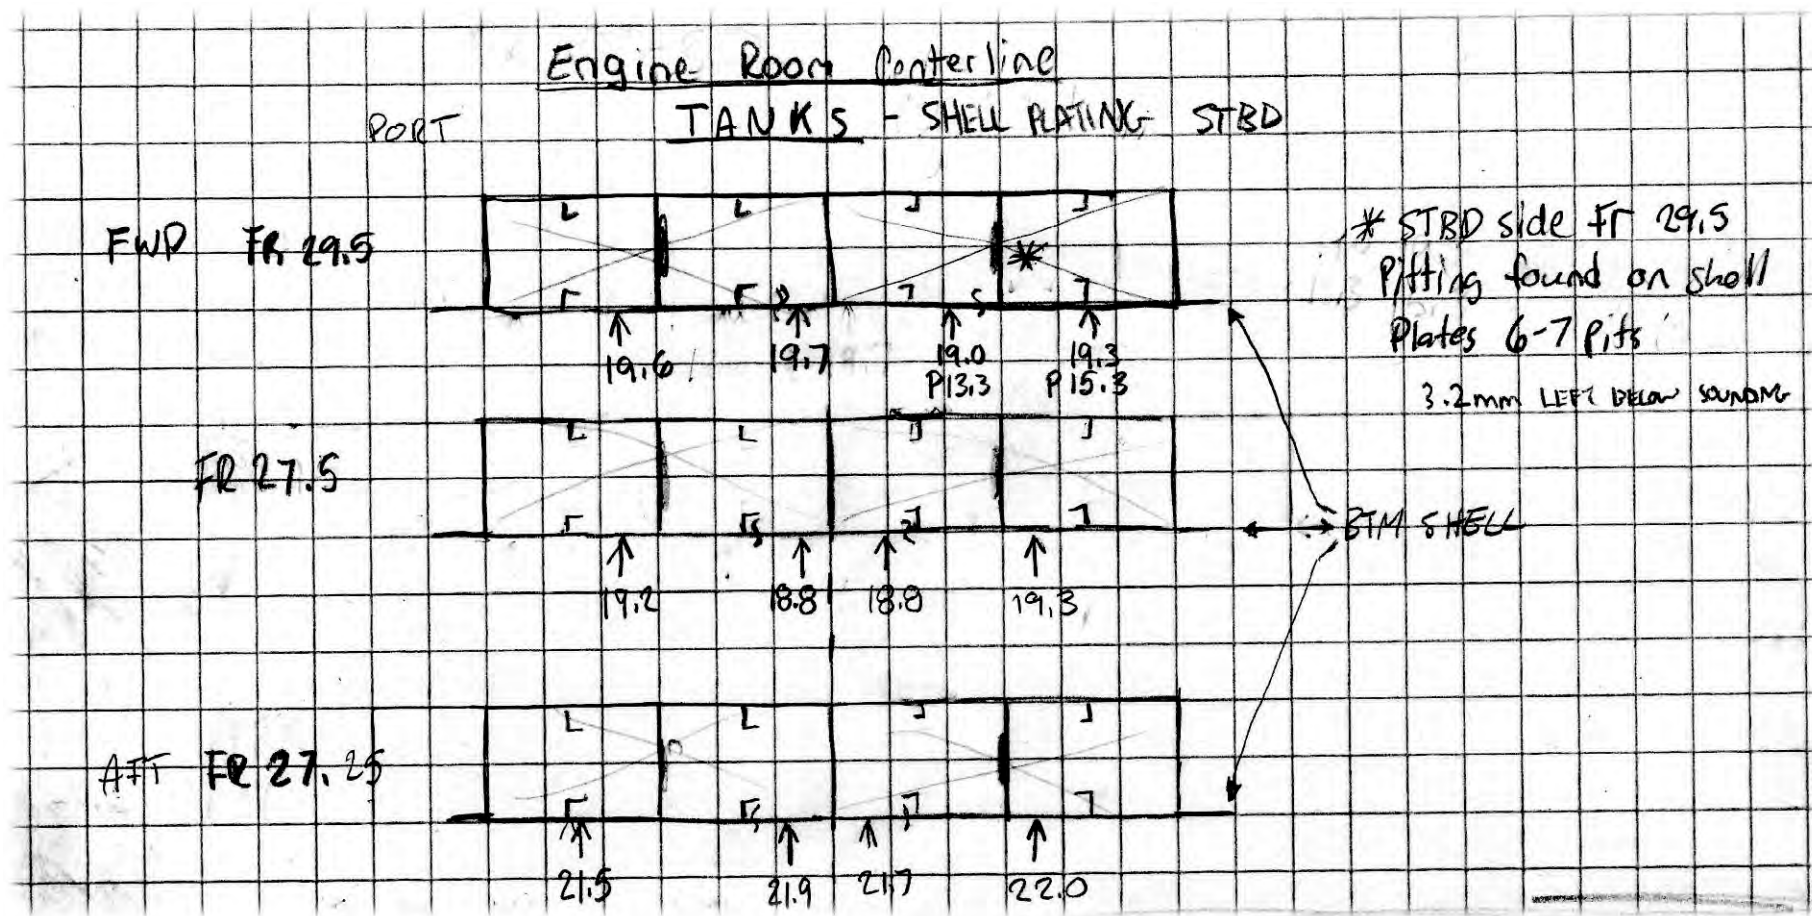 Engine Room Centerline
TANKS - SHELL PLATING
PORT
STBD
FWD FR 29.5
19.6
19.7
19.0
P13.3
19.3
P15.3
* STBD side Fr 29.5
Pitting found on shell
Plates 6-7 Pits
3.2mm LEFT BELOW SOUNDING
FR 27.5
19.2
18.8
18.8
19.3
BTM SHELL
AFT FR 27.25
21.5
21.9
21.7
22.0